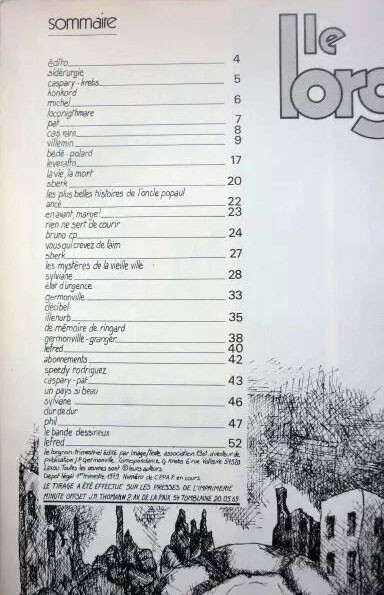 sommaire
le
lorg
édito 4
sidérurgie
caspary-krebs 5
konkord
michel 6
loconigthmare
pat 7
cas rare 8
villemin 9
bédé-polard
levesatto 17
la vie, la mort
sberk 20
les plus belles histoires de l'oncle popaul
ancé 22
en avant, marge! 23
rien ne sert de courir
bruno cp 24
vous qui crevez de faim
sberk 27
les mystères de la vieille ville
sylviane 28
état d'urgence
germonville 33
décibel
illenurb 35
de mémoire de ringard
germonville-granger 38
lefred 40
abonnements 42
speedy rodriguez
caspary-pat 43
un pays si beau
sylviane 46
dur de dur
phil 47
le bande dessineux
lefred 52
le lorgnon: trimestriel édité par Image/Texte, association 1901. directeur de
publication J.P. germonville. Correspondance G. Krebs 6 rue Voltaire 54520
Laxou. Toutes les œuvres sont © leurs auteurs.
Dépot légal 1er trimestre 1979. Numéro de C.P.P.A.P. en cours.
LE TIRAGE A ÉTÉ EFFECTUÉ SUR LES PRESSES DE L'IMPRIMERIE
MINUTE OFFSET J.M THOMANN 2, AV. DE LA PAIX 54 TOMBLAINE 20.03.69